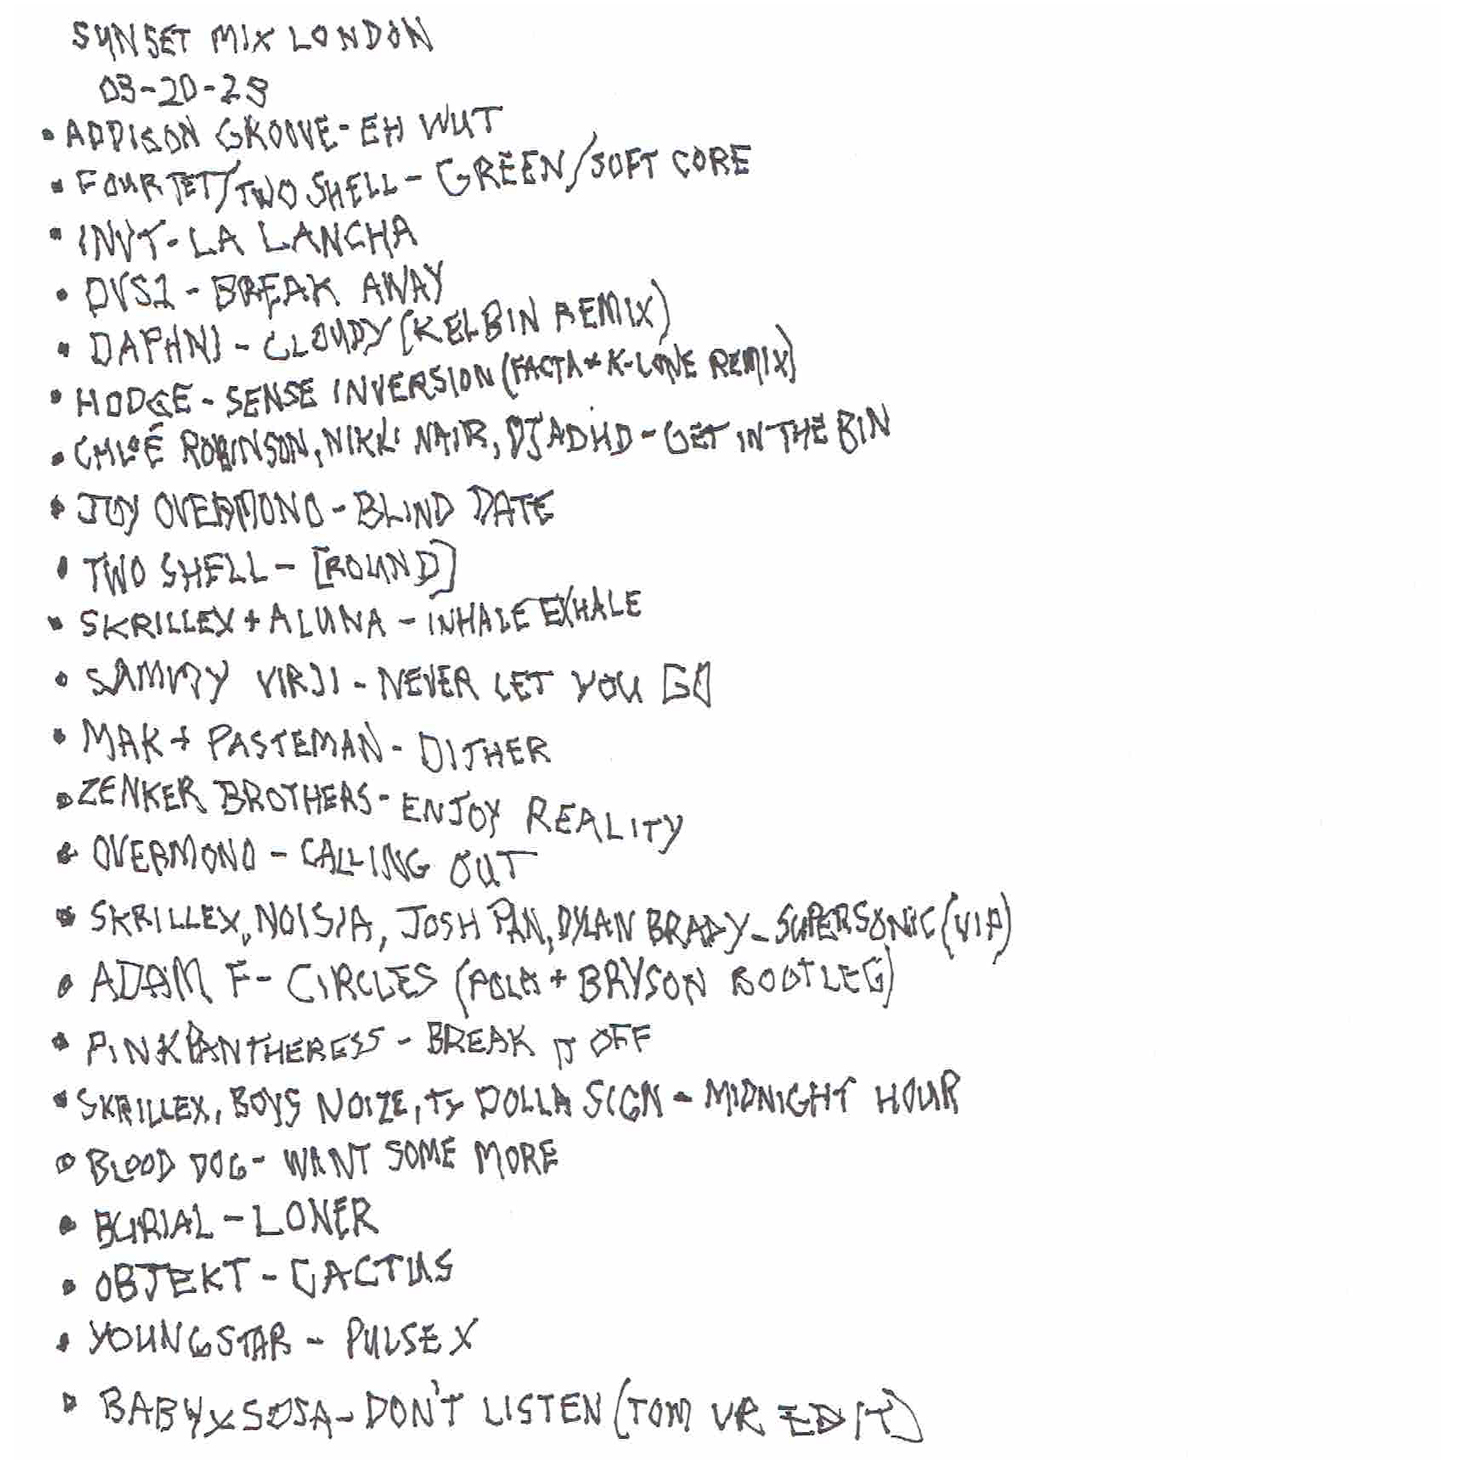 SUNSET MIX LONDON
03-20-23
• ADDISON GROOVE - EH WUT
• FOUR TET/TWO SHELL - GREEN/SOFT CORE
• INVT - LA LANCHA
• DVS1 - BREAK AWAY
• DAPHNI - CLOUDY (KELBIN REMIX)
• HODGE - SENSE INVERSION (FACTA + K-LONE REMIX)
• CHLOÉ ROBINSON, NIKKI NAIR, DJ ADHD - GET IN THE BIN
• JOY OVERMONO - BLIND DATE
• TWO SHELL - [ROUND]
• SKRILLEX + ALUNA - INHALE EXHALE
• SAMMY VIRJI - NEVER LET YOU GO
• MAK + PASTEMAN - DITHER
• ZENKER BROTHERS - ENJOY REALITY
• OVERMONO - CALLING OUT
• SKRILLEX, NOISIA, JOSH PAN, DYLAN BRADY - SUPERSONIC (VIP)
• ADAM F - CIRCLES (POLA + BRYSON BOOTLEG)
• PINKPANTHERESS - BREAK IT OFF
• SKRILLEX, BOYS NOIZE, TY DOLLA SIGN - MIDNIGHT HOUR
• BLOOD DOG - WANT SOME MORE
• BURIAL - LONER
• OBJEKT - CACTUS
• YOUNGSTAR - PULSE X
• BABYXSOSA - DON'T LISTEN (TOM VR EDIT)